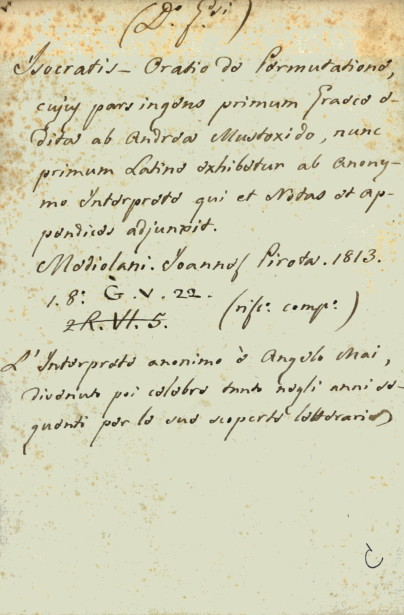 Isocratis - Oratio de Permutatione,
cujus pars ingens primum Graece e-
dita ab Andrea Mustoxido, nunc
primum Latine exhibetur ab Anony-
mo Interprete qui et Notas et Ap-
pendices adjunxit.
Mediolani. Joannes Pirota. 1813.
1. 8.° G. V. 22.
2 R. VI. 5. (risc.° comp.°)
L'Interprete anonimo è Angelo Mai,
divenuto poi celebre tanto negli anni se-
guenti per le sue scoperte letterarie